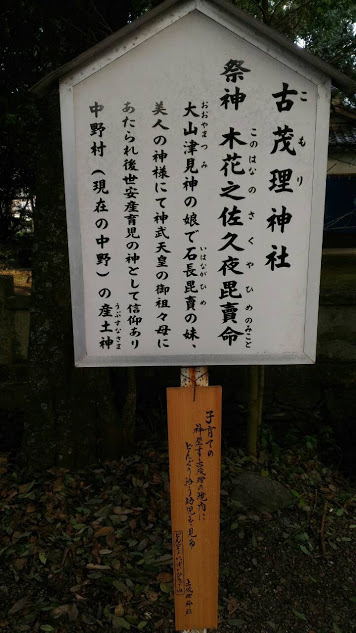 古茂理神社
こもり
祭神 木花之佐久夜毘賣命
このはなのさくやひめのみこと
大山津見神の娘で石長毘賣の妹、
おおやまつみ
いはながひめ
美人の神様にて神武天皇の御祖々母に
あたられ後世安産育児の神として信仰あり
中野村(現在の中野)の産土神
うぶすなさま
子育ての
神聖す古茂理の境内に
どんぐり拾う幼児を見る